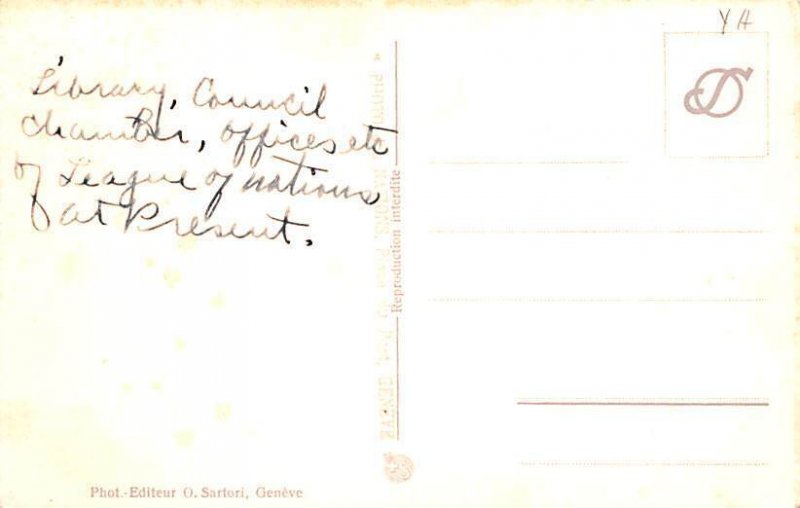 Library, Council
Chamber, offices etc
of League of nations
at Present.
Y A
Reproduction interdite
GENÈVE
Phot.-Editeur O. Sartori, Genève